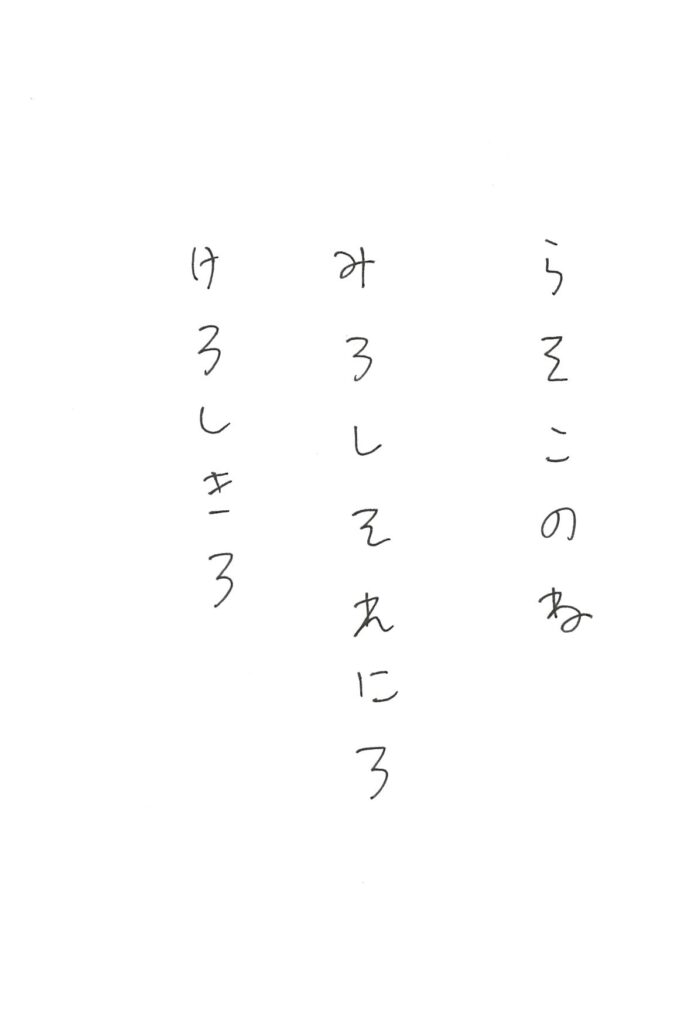 らそこのね
みろしそれにろ
けろしきろ